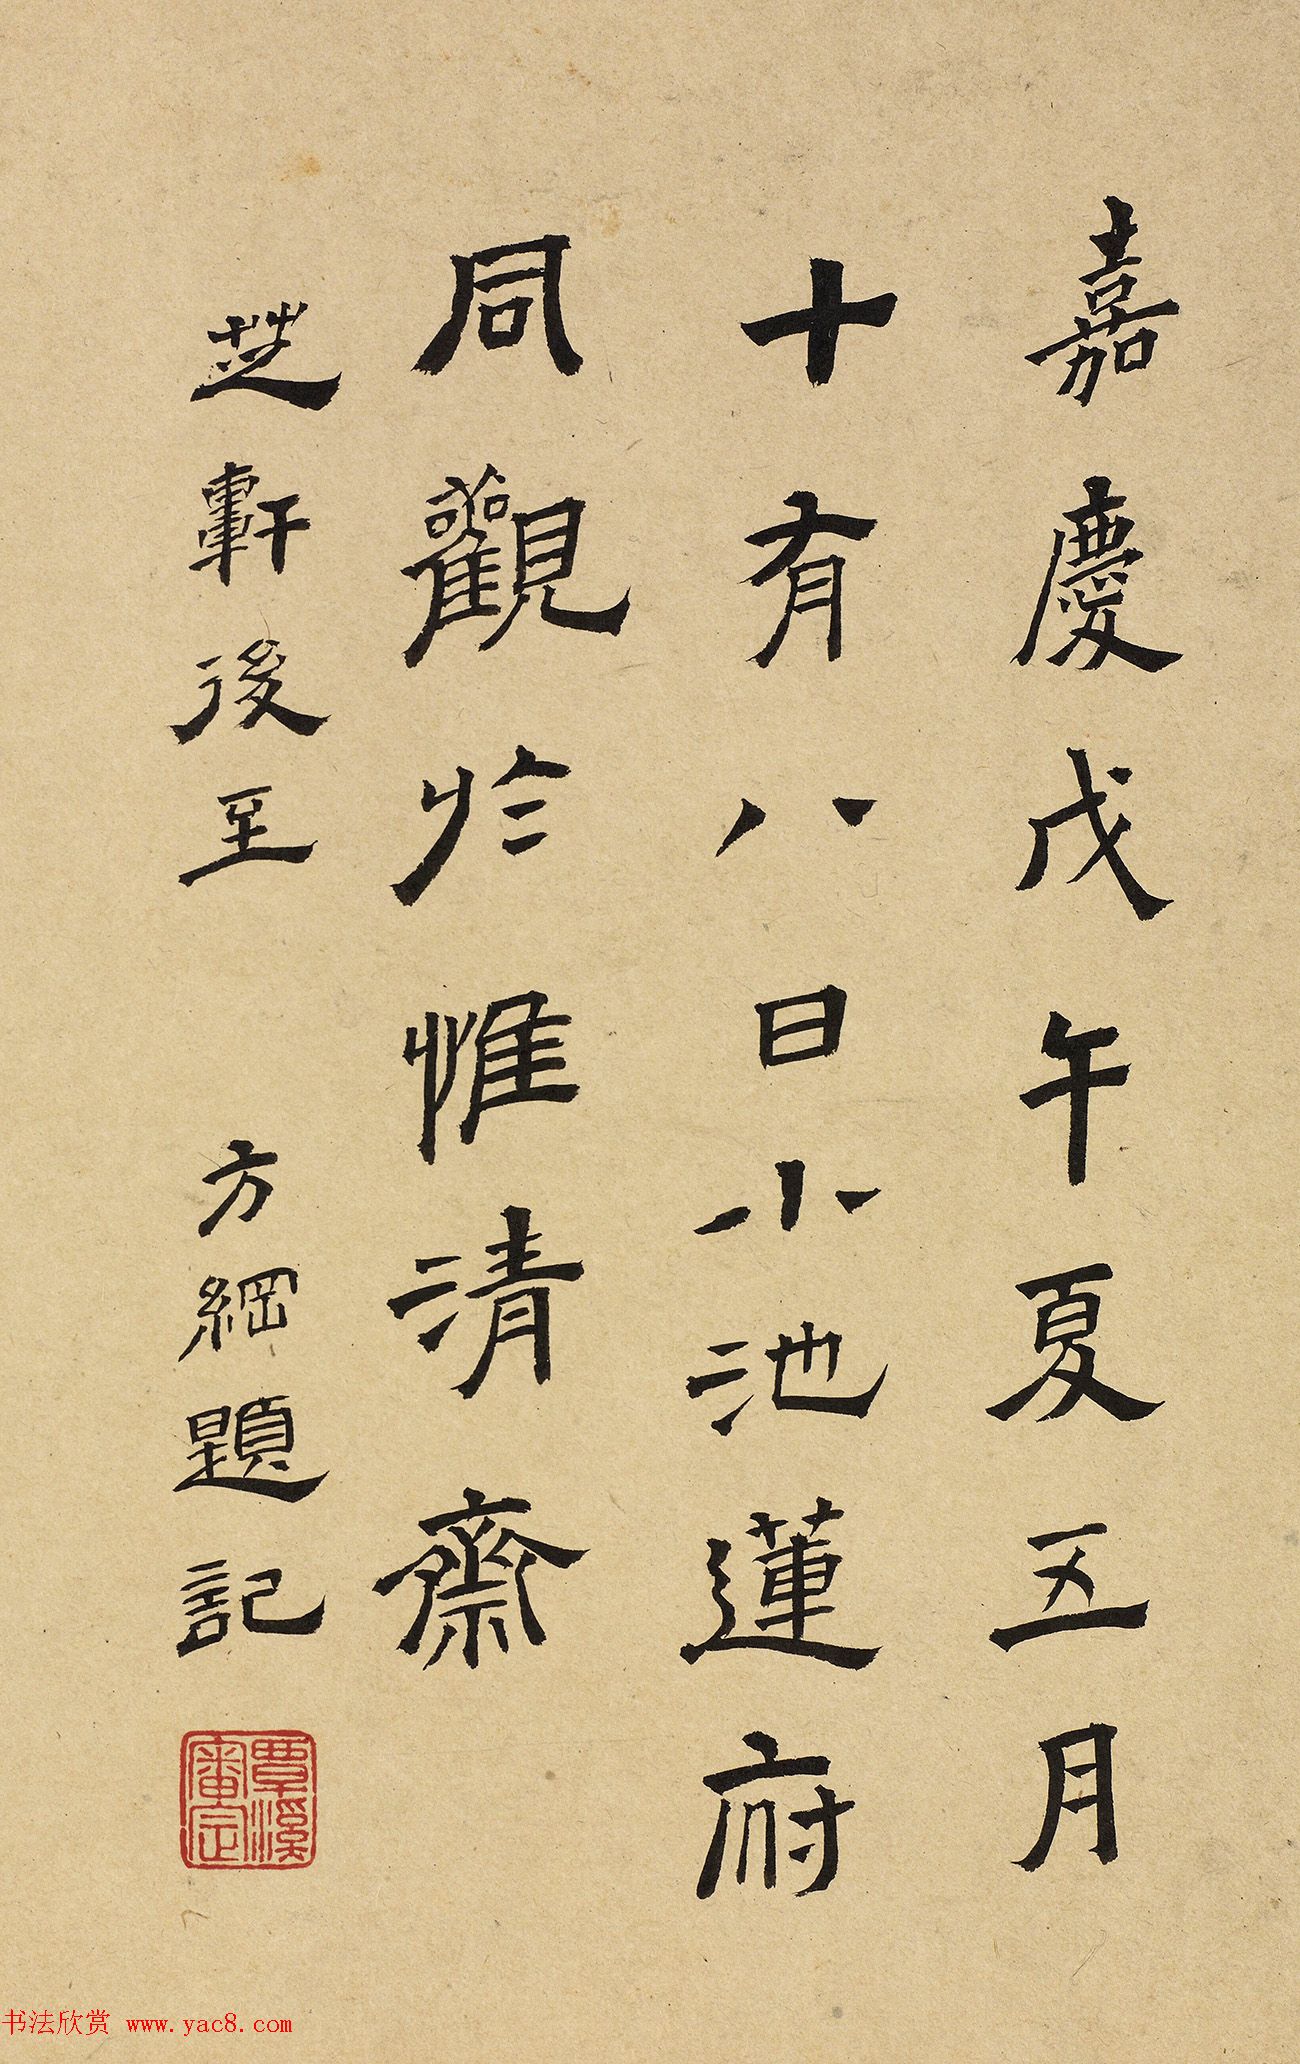 嘉慶戊午夏五月
十有八日小池蓮府
同觀於惟清齋
芝軒後至 方綱題記
覃溪審定
书法欣赏 www.yac8.com